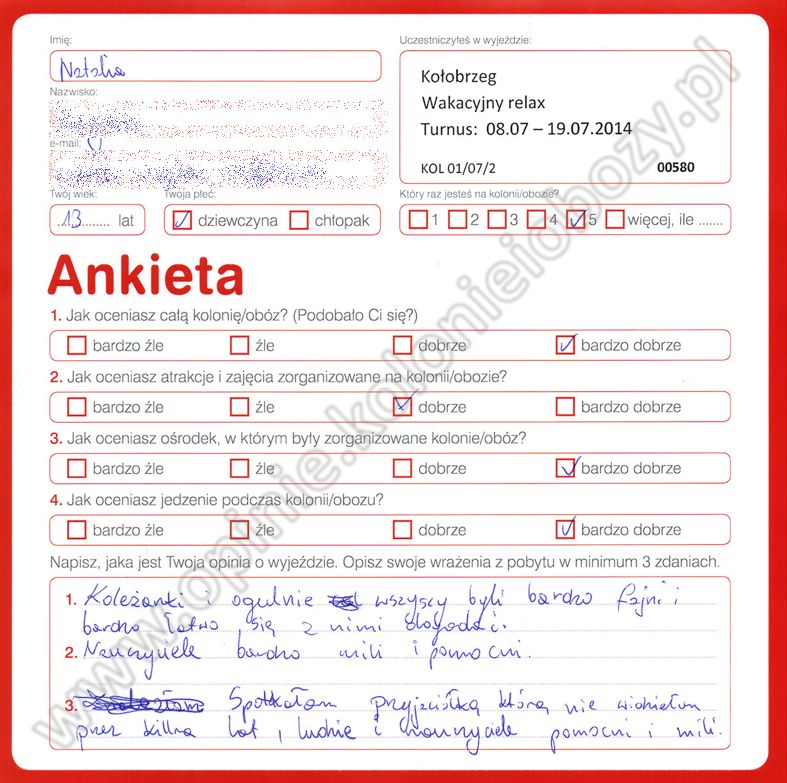 Imię:
Natalia
Nazwisko:
e-mail:
Twój wiek:
13 lat
Twoja płeć:
dziewczyna chłopak
Uczestniczyłeś w wyjeździe:
Kołobrzeg
Wakacyjny relax
Turnus: 08.07 – 19.07.2014
KOL 01/07/2 00580
Który raz jesteś na kolonii/obozie?
1 2 3 4 5 więcej, ile .......
Ankieta
1. Jak oceniasz całą kolonię/obóz? (Podobało Ci się?)
bardzo źle źle dobrze bardzo dobrze
2. Jak oceniasz atrakcje i zajęcia zorganizowane na kolonii/obozie?
bardzo źle źle dobrze bardzo dobrze
3. Jak oceniasz ośrodek, w którym były zorganizowane kolonie/obóz?
bardzo źle źle dobrze bardzo dobrze
4. Jak oceniasz jedzenie podczas kolonii/obozu?
bardzo źle źle dobrze bardzo dobrze
Napisz, jaka jest Twoja opinia o wyjeździe. Opisz swoje wrażenia z pobytu w minimum 3 zdaniach.
1. Koleżanki i ogulnie wszyscy byli bardzo fajni i
bardzo łatwo się z nimi dogadać.
2. Nauczyciele bardzo mili i pomocni.
3. Spotkałam przyjaciółką którą nie widziałam
przez kilka lat, ludzie i nauczyciele pomocni i mili.
www.opinie.kolonieiobozy.pl